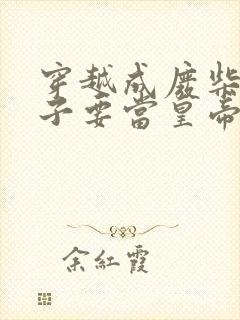 穿越成廢柴
子要當皇帝
余紅霞